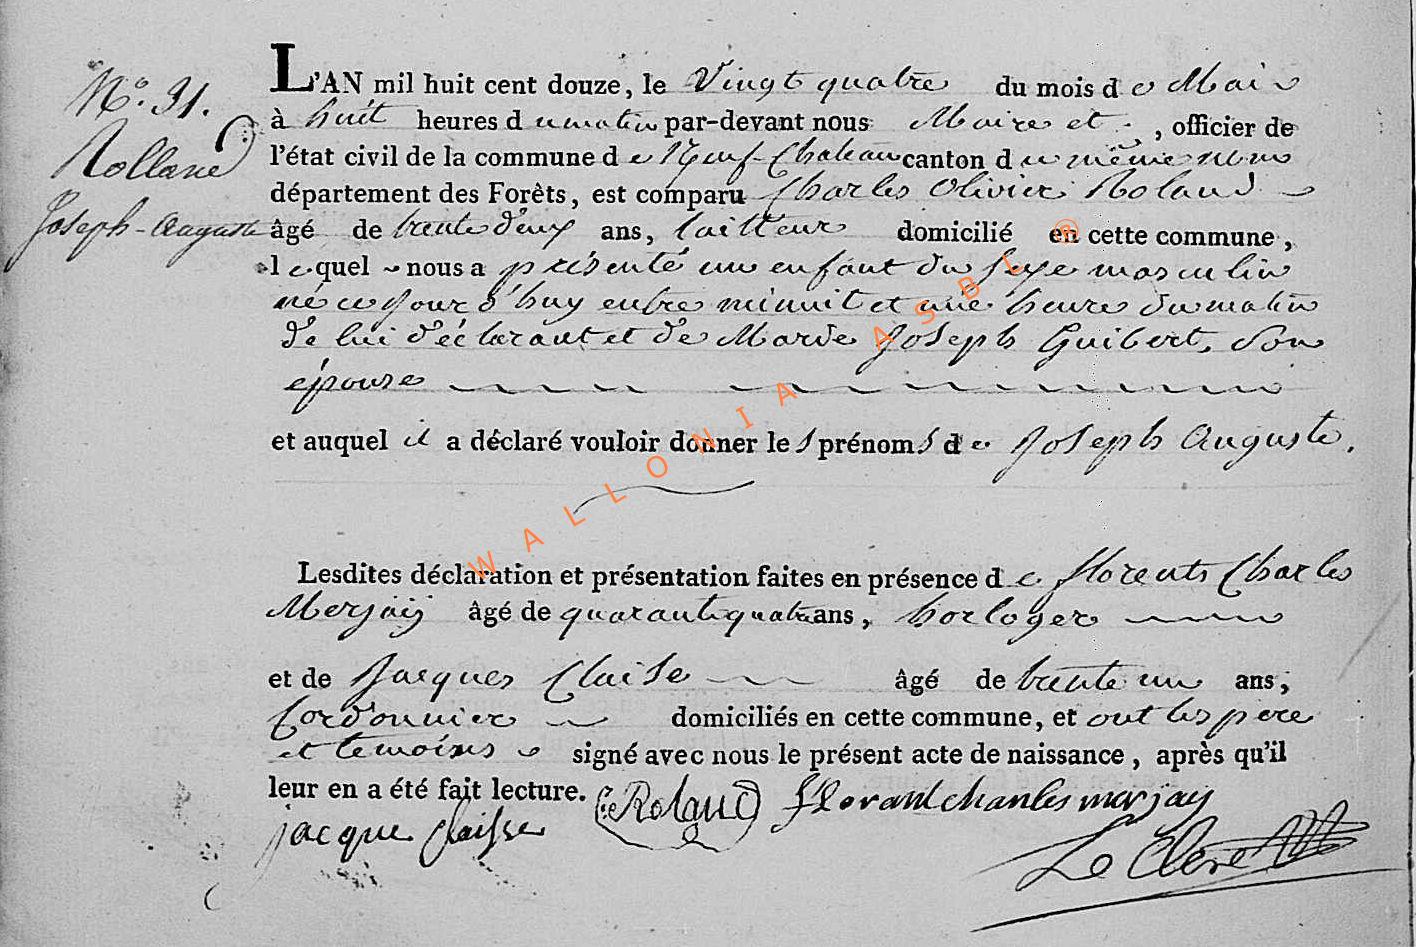 N.° 31.
Rolland
Joseph-Auguste
L'AN mil huit cent douze, le Vingt quatre du mois de Mai
à huit heures du matin par-devant nous Maire et , officier de
l'état civil de la commune de Neuf-Chateau canton du même nom
département des Forêts, est comparu Charles Olivier Roland
âgé de trente deux ans, tailleur domicilié en cette commune,
lequel nous a présenté un enfant du sexe masculin
né ce jour d'huy entre minuit et une heure du matin
de lui déclarant et de Marie Joseph Guibert, son
épouse
et auquel il a déclaré vouloir donner les prénoms de Joseph Auguste.
Lesdites déclaration et présentation faites en présence de florents Charles
Merjaij âgé de quarante quatre ans, horloger
et de Jacques Claise âgé de trente un ans,
Cordonnier domiciliés en cette commune, et ont les pere
et temoins signé avec nous le présent acte de naissance, après qu'il
leur en a été fait lecture. C Roland florant charles merjaij
jacque Claisse
Le Clerc
WALLONIA ASBL ®